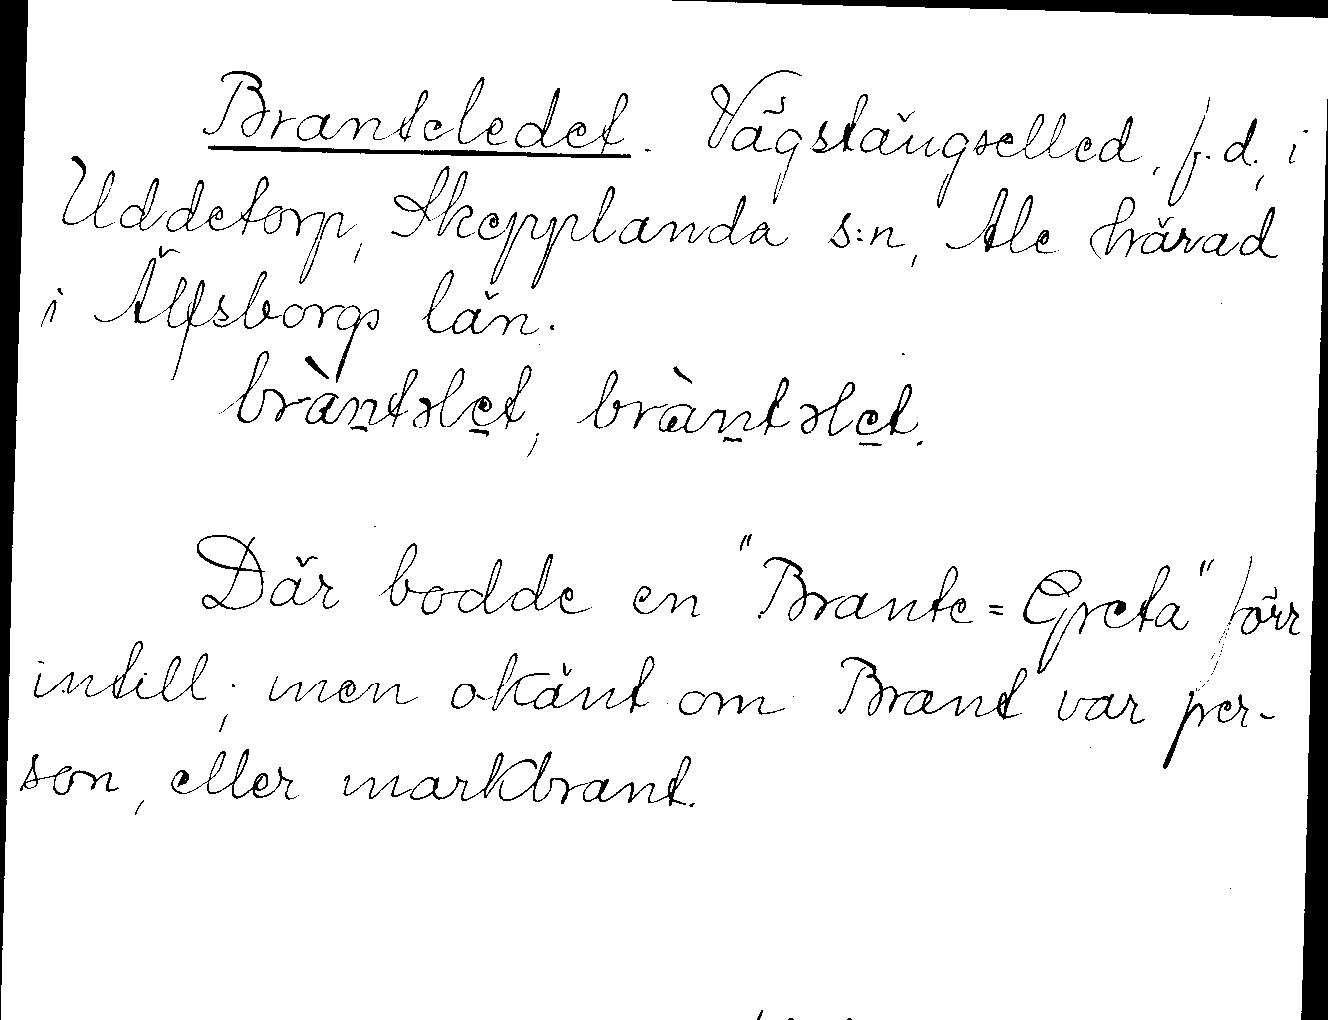 Branteledet. Vägstängselled, f.d., i
Uddetorp, Skepplanda s:n, Ale härad
i Älfsborgs län.
bràn̠təle̠t, bràn̠təle̠t.
Där bodde en "Brante=Greta" förr
intill; men okänt om Brant var per-
son, eller markbrant.